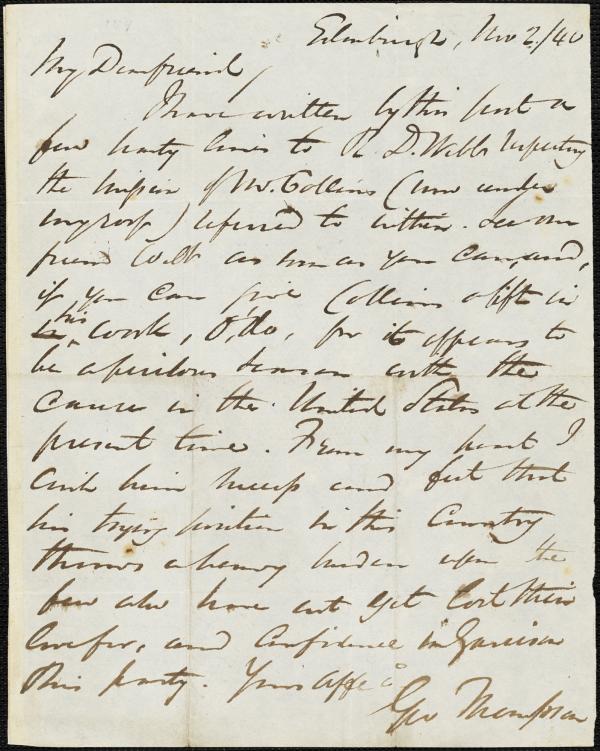 Edinburgh, Nov 2./40
My Dear friend,
I have written by this post a
few hasty lines to R. D. Webb respecting
the mission of Mr. Collins (now under
my roof) referred to within. See our
friend Webb as soon as you can, and,
if you can give Collins a lift in
his work, O, do, for it appears to
be a perilous season with the
cause in the United States at the
present time. From my heart I
wish him success and feel that
his trying position in this Country
throws a heavy burden upon the
few who have not yet lost their
love for, and confidence in Garrison
& his party. Yours affec
Geo Thompson